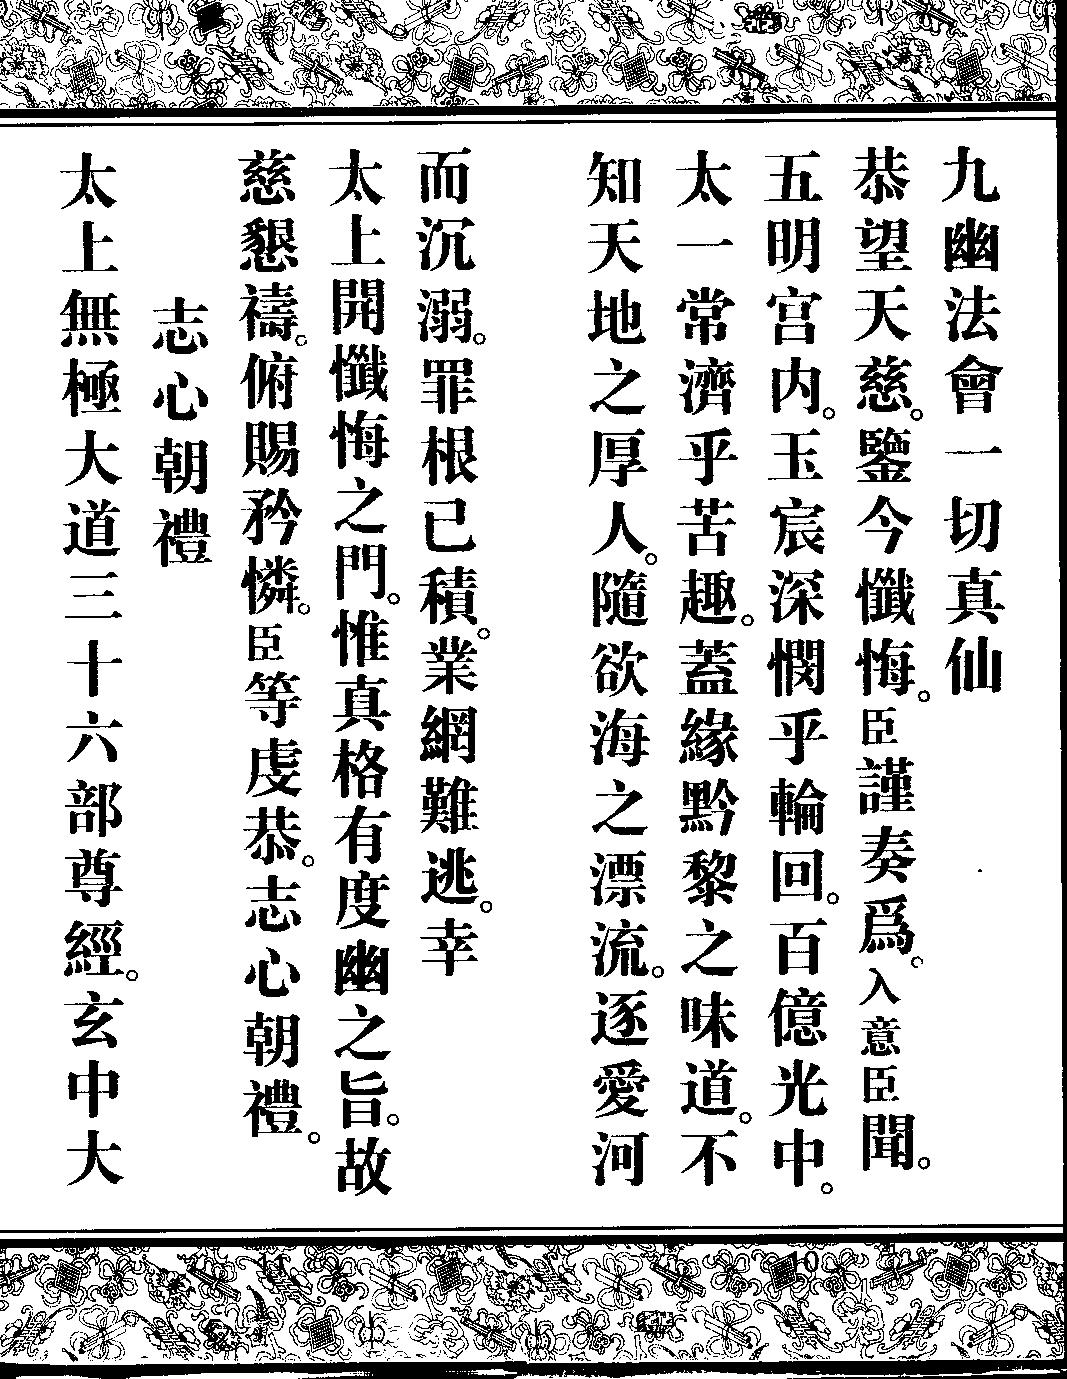 九幽法會一切真仙
恭望天慈。鑒今懺悔。臣謹奏爲。入意臣聞。
五明宮内。玉宸深憫乎輪回。百億光中。
太一常濟乎苦趣。蓋緣黔黎之味道。不
知天地之厚人。隨欲海之漂流。逐愛河
而沉溺。罪根已積。業網難逃。幸
太上開懺悔之門。惟真格有度幽之旨。故
慈懇禱。俯賜矜憐。臣等虔恭。志心朝禮。
志心朝禮
太上無極大道三十六部尊經。玄中大
10